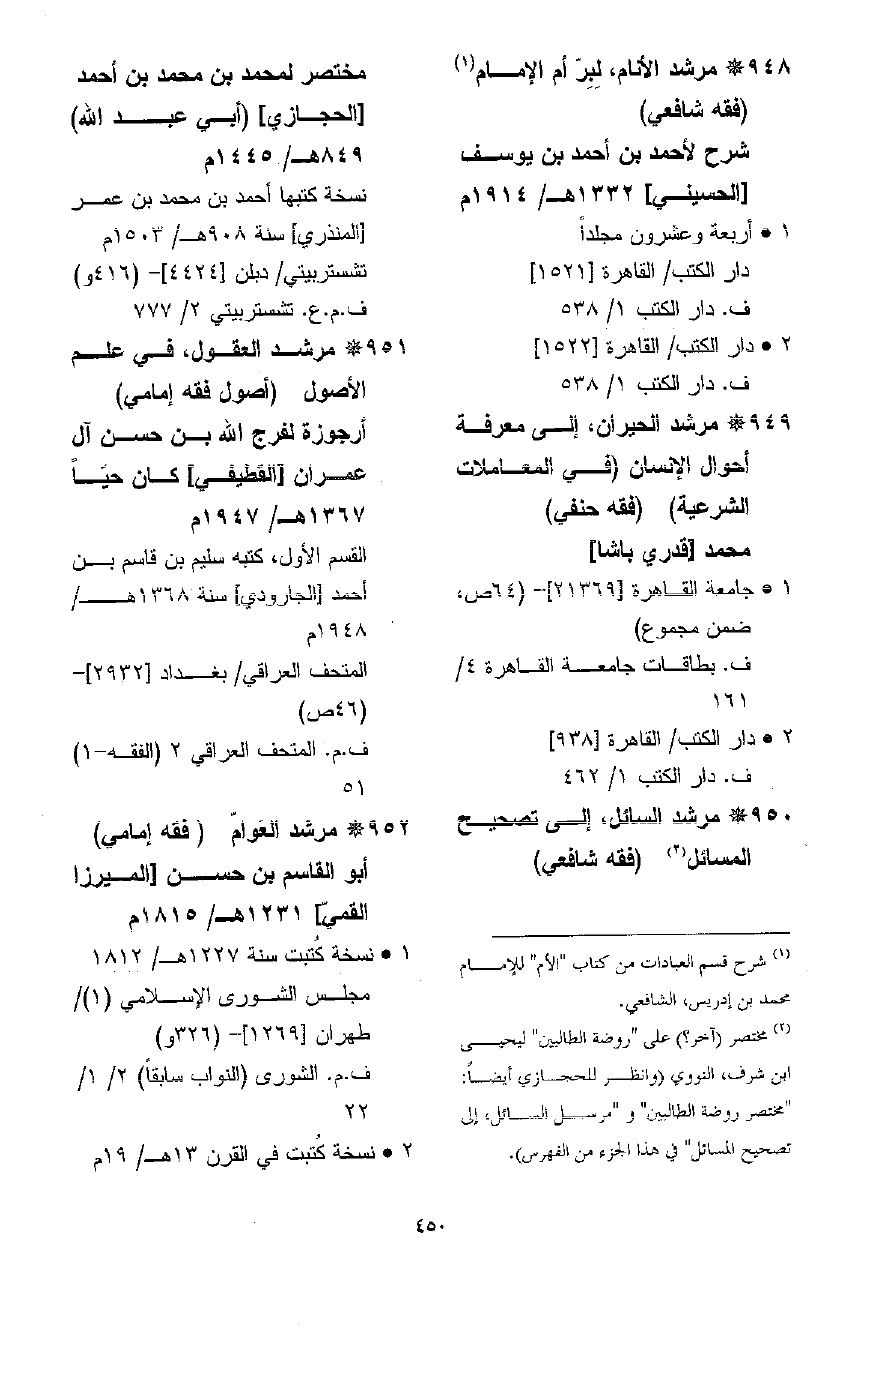 ٩٤٨* مرشد الأنام، لبِرّ أم الإمام(١)
(فقه شافعي)
شرح لأحمد بن أحمد بن يوسف
[الحسيني] ١٣٣٢هـ/ ١٩١٤م
١ • أربعة وعشرون مجلداً
دار الكتب/ القاهرة [١٥٢١]
ف. دار الكتب ١/ ٥٣٨
٢ • دار الكتب/ القاهرة [١٥٢٢]
ف. دار الكتب ١/ ٥٣٨
٩٤٩* مرشد الحيران، إلى معرفة
أحوال الإنسان (في المعاملات
الشرعية) (فقه حنفي)
محمد [قدري باشا]
١ • جامعة القاهرة [٢١٣٦٩]- (٦٤ص،
ضمن مجموع)
ف. بطاقات جامعة القاهرة ٤/
١٦١
٢ • دار الكتب/ القاهرة [٩٣٨]
ف. دار الكتب ١/ ٤٦٢
٩٥٠* مرشد السائل، إلى تصحيح
المسائل(٢) (فقه شافعي)
(١) شرح قسم العبادات من كتاب "الأم" للإمام
محمد بن إدريس، الشافعي.
(٢) مختصر (آخر؟) على "روضة الطالبين" ليحيى
ابن شرف، النووي (وانظر للحجازي أيضاً:
"مختصر روضة الطالبين" و "مرسل السائل، إلى
تصحيح المسائل" في هذا الجزء من الفهرس).
مختصر لمحمد بن محمد بن أحمد
[الحجازي] (أبي عبد الله)
٨٤٩هـ/ ١٤٤٥م
نسخة كتبها أحمد بن محمد بن عمر
[المنذري] سنة ٩٠٨هـ/ ١٥٠٣م
تشستربيتي/ دبلن [٤٤٢٤]- (٤١٦و)
ف.م.ع. تشستربيتي ٢/ ٧٧٧
٩٥١* مرشد العقول، في علم
الأصول (أصول فقه إمامي)
أرجوزة لفرج الله بن حسن آل
عمران [القطيفي] كان حيّاً
١٣٦٧هـ/ ١٩٤٧م
القسم الأول، كتبه سليم بن قاسم بن
أحمد [الجارودي] سنة ١٣٦٨هـ/
١٩٤٨م
المتحف العراقي/ بغداد [٢٩٣٢]-
(٤٦ص)
ف.م. المتحف العراقي ٢ (الفقه-١)
٥١
٩٥٢* مرشد العَوامّ ( فقه إمامي)
أبو القاسم بن حسن [الميرزا
القميّ] ١٢٣١هـ/ ١٨١٥م
١ • نسخة كُتبت سنة ١٢٢٧هـ/ ١٨١٢
مجلس الشورى الإسلامي (١)/
طهران [١٢٦٩]- (٣٢٦و)
ف.م. الشورى (النواب سابقاً) ٢/ ١/
٢٢
٢ • نسخة كُتبت في القرن ١٣هـ/ ١٩م
٤٥٠